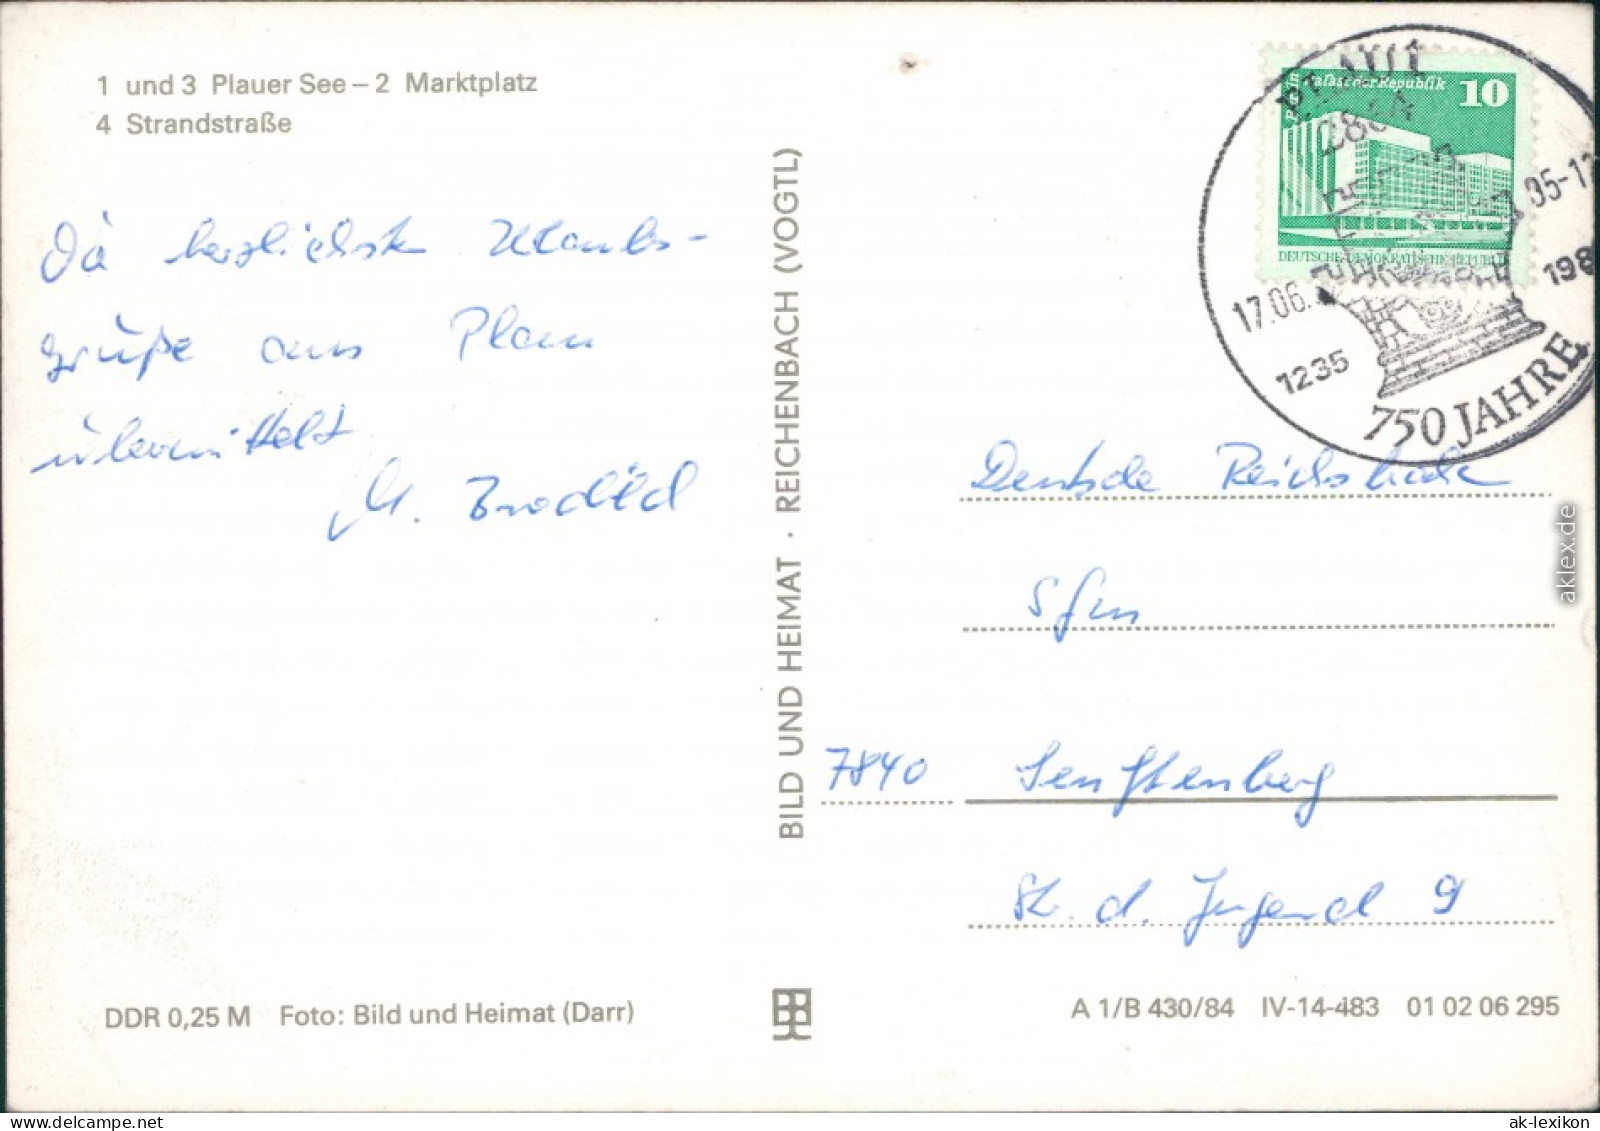 1 und 3 Plauer See – 2 Marktplatz
4 Strandstraße
herzlichste Urlaubs-
grüße aus Plau
übermittelt
M.
BILD UND HEIMAT · REICHENBACH (VOGTL)
Palast der Republik 10
DEUTSCHE DEMOKRATISCHE REPUBLIK
17.06.
85-12
1235
198
750 JAHRE
Deutsche Reichsbahn
Sfm
7840 Senftenberg
Str. d. Jugend 9
DDR 0,25 M Foto: Bild und Heimat (Darr)
A 1/B 430/84 IV-14-483 01 02 06 295
aklex.de
ak-lexikon